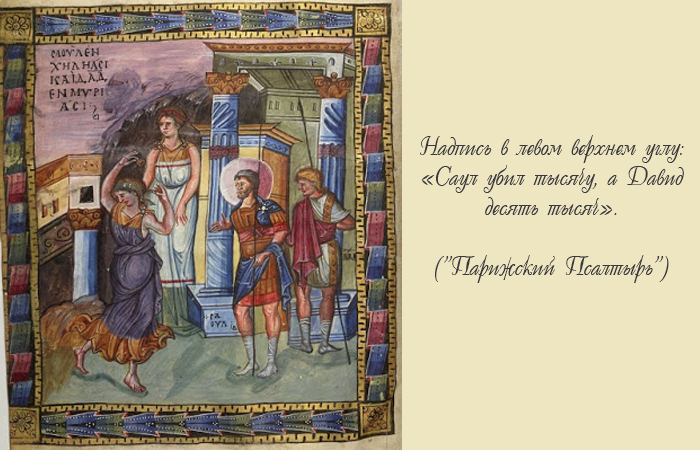 CΑΟΥΛ ΕΝ
ΧΙΛΙΑCΙ
ΚΑΙ ΔΑΔ
ΕΝ ΜΥΡΙ
ΑCΙ
CΑ
ΟΥΛ
Надпись в левом верхнем углу:
«Саул убил тысячу, а Давид
десять тысяч».
("Парижский Псалтырь")